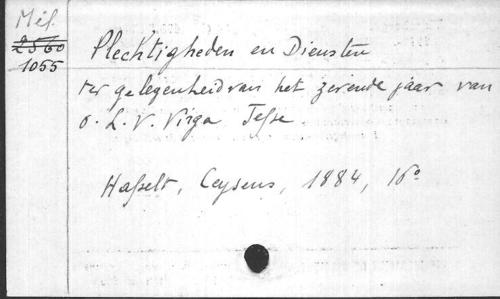 Mél.
2560
1055
Plechtigheden en Diensten
ter gelegenheid van het zevende jaar van
O. L. V. Virga Jesse.
Hasselt, Ceysens, 1884, 16°